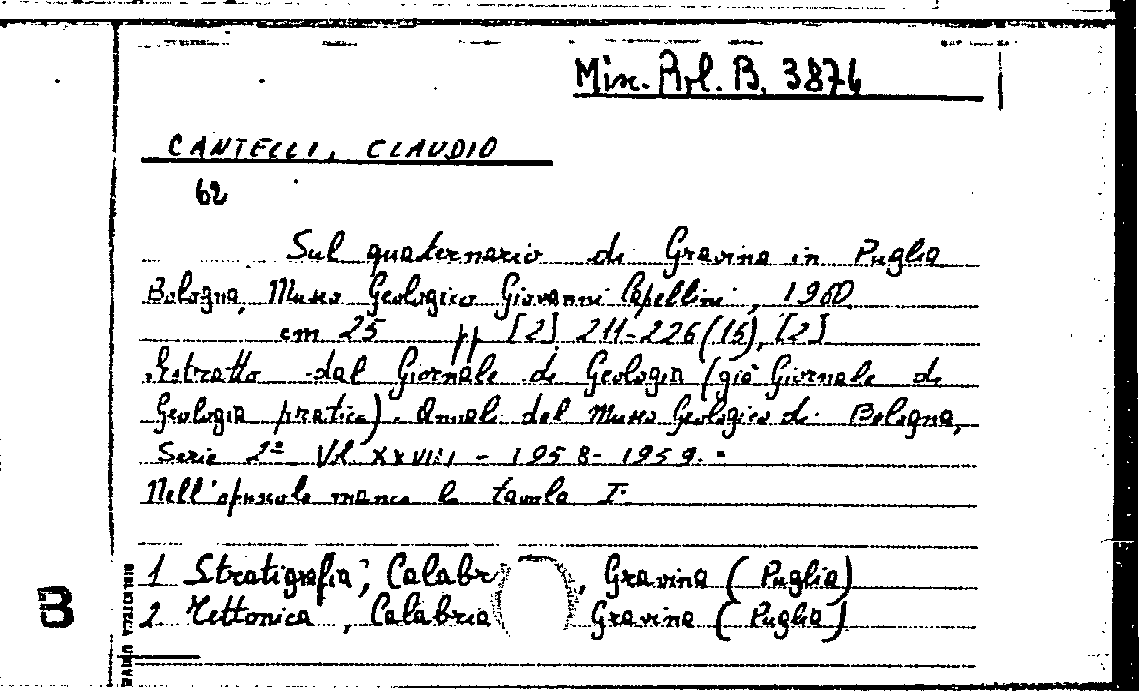 Misc. Bol. B. 3876
CANTELLI, CLAUDIO
62
Sul quaternario di Gravina in Puglia
Bologna, Museo Geologico Giovanni Capellini, 1960
cm 25 pp [2] 211-226(15), [2]
Estratto dal Giornale di Geologia (già Giornale di
Geologia pratica). Annali del Museo Geologico di Bologna,
Serie 2ª Vol. XXVIII - 1958-1959.-
Nell'opuscolo manca la tavola I.
1 Stratigrafia, Calabr , Gravina (Puglia)
2. Tettonica, Calabria Gravina (Puglia)
B